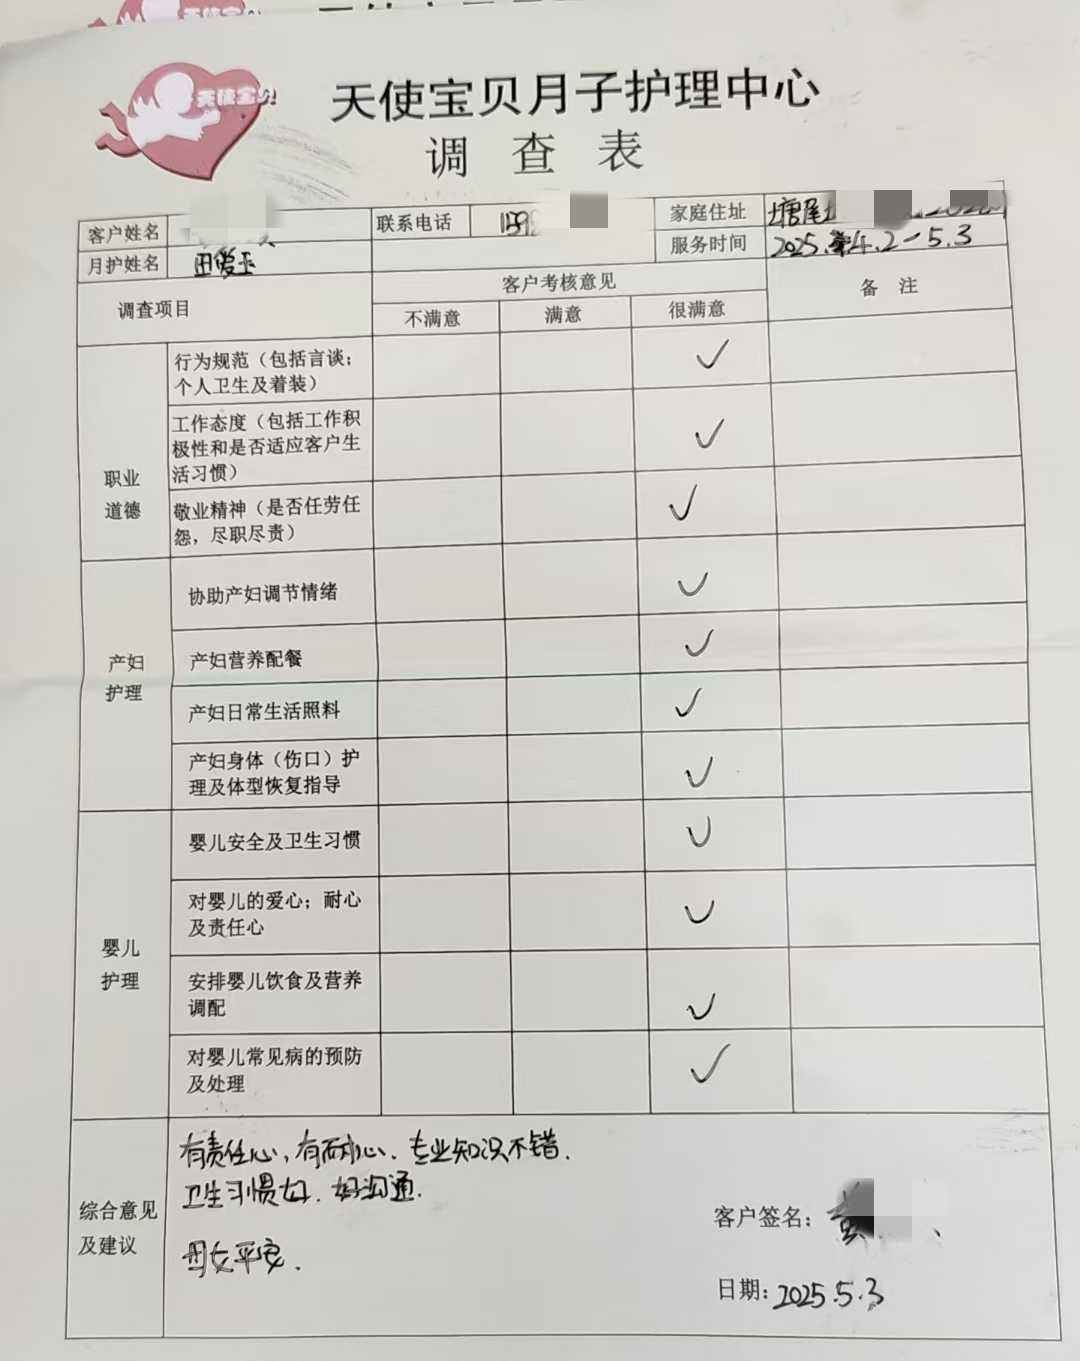 天使宝贝
天使宝贝月子护理中心
调查表
客户姓名 联系电话 家庭住址 塘尾
月护姓名 田爱玉 服务时间 2025.4.2-5.3
调查项目 客户考核意见 备注
不满意 满意 很满意
职业
道德
行为规范(包括言谈;
个人卫生及着装) ✓
工作态度(包括工作积
极性和是否适应客户生
活习惯) ✓
敬业精神(是否任劳任
怨,尽职尽责) ✓
产妇
护理
协助产妇调节情绪 ✓
产妇营养配餐 ✓
产妇日常生活照料 ✓
产妇身体(伤口)护
理及体型恢复指导 ✓
婴儿
护理
婴儿安全及卫生习惯 ✓
对婴儿的爱心;耐心
及责任心 ✓
安排婴儿饮食及营养
调配 ✓
对婴儿常见病的预防
及处理 ✓
综合意见
及建议
有责任心,有耐心.专业知识不错.
卫生习惯好.好沟通.
母女平安.
客户签名: 黄
日期: 2025.5.3